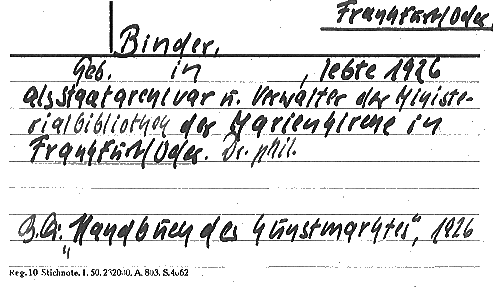 Frankfurt/Oder
Binder,
Geb. in , lebte 1926
als Staatarchivar u. Verwalter der Ministe-
rialbibliothek der Marienkirche in
Frankfurt/Oder. Dr. phil.
B.Qu: "Handbuch des Kunstmarktes", 1926
Reg. 10 Stichnote. I. 50. A. 803. S.4662